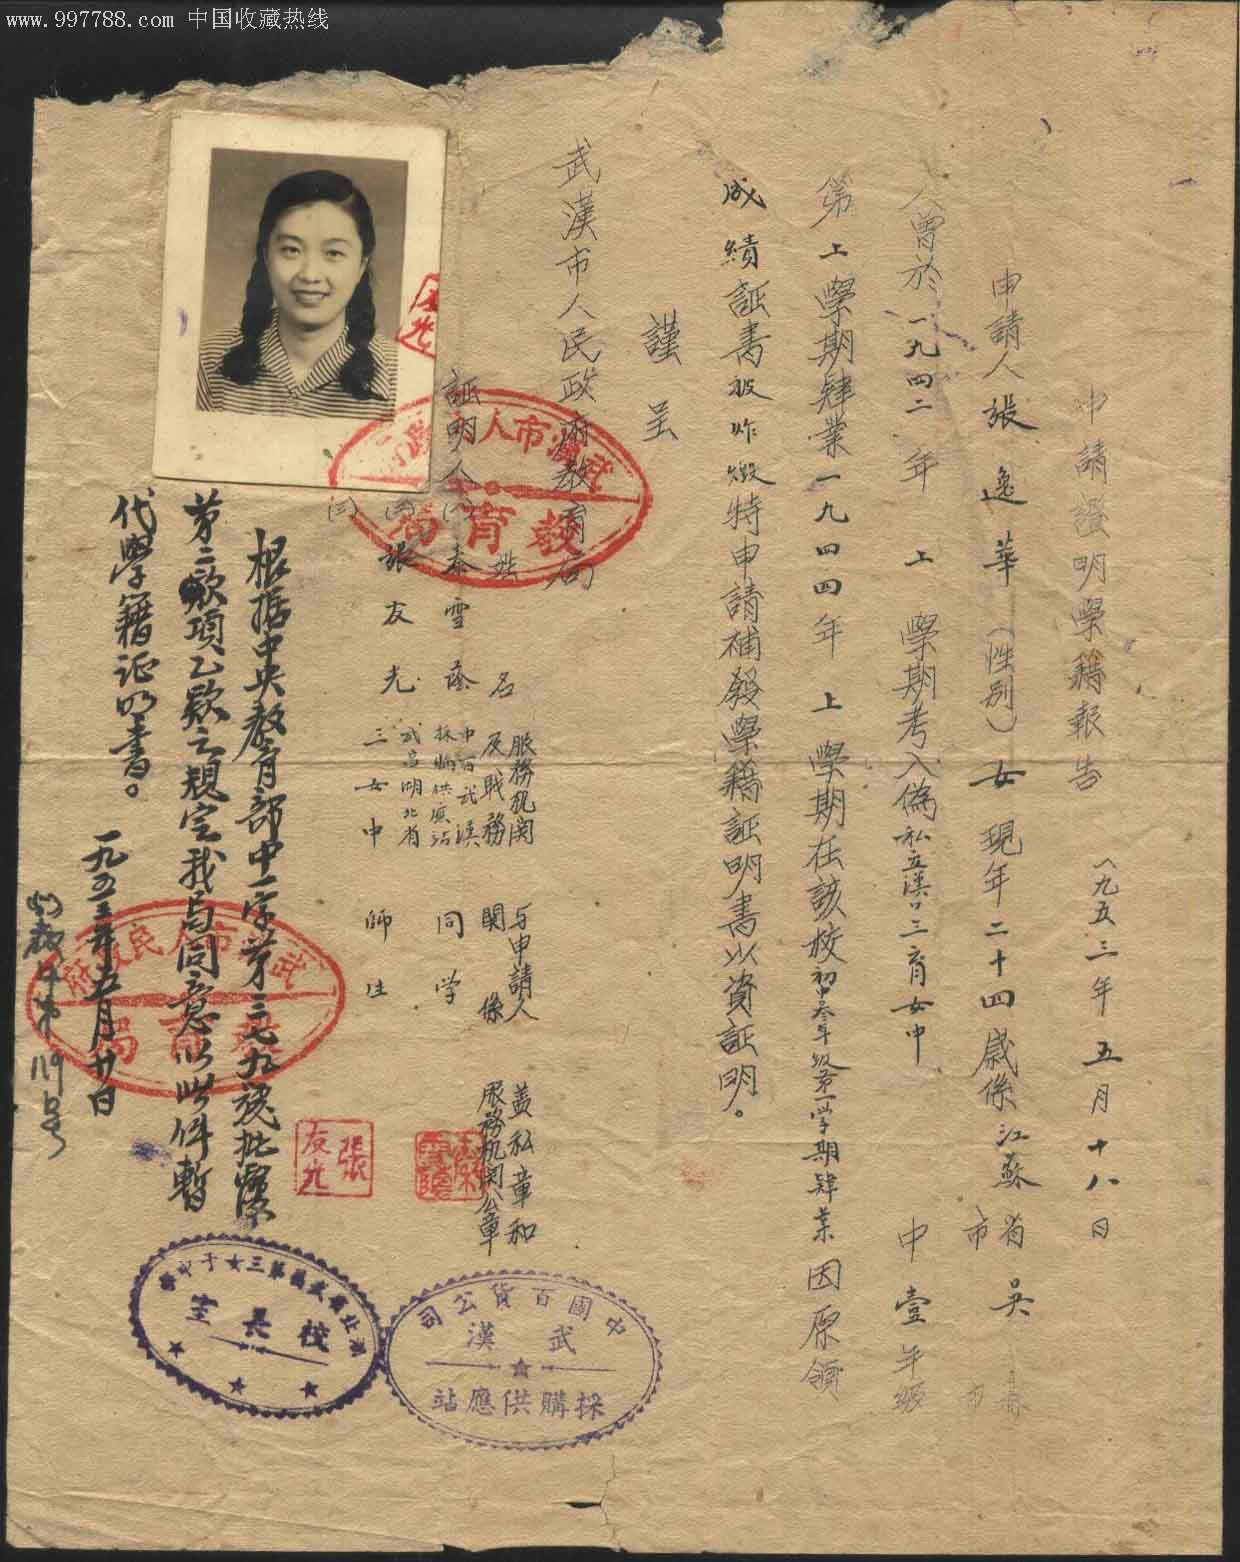 www.997788.com 中国收藏热线
申請證明學籍報告
一九五三年五月十八日
申請人張逸華(性别)女現年二十四歲係江蘇省吳
市
人曾於一九四二年上學期考入偽私立漢口三育女中
中壹年級
第上學期肄業一九四四年上學期在該校初中叁年级第一學期肄業因原領
成績証書被炸燬特申請補發學籍証明書以資証明。
謹呈
武漢市人民政府教育局
姓名
服務机関及戰務
与申請人関係
蓋私章和服務机関公章
証明人
秦雪蔭
中百武漢採購供应站
同学
(二)
張友光
武昌湖北省三女中
師生
(三)
根据中央教育部中一字第三七九號批覆
第二欵項乙欵之規定我局同意以此件暫
代學籍证明書。
一九五三年五月廿日
武漢市人民政府
教育局
武漢市人民政府
教育局
張友光
中國百貨公司
武漢
採購供應站
湖北省武昌第三女子中學
校長室